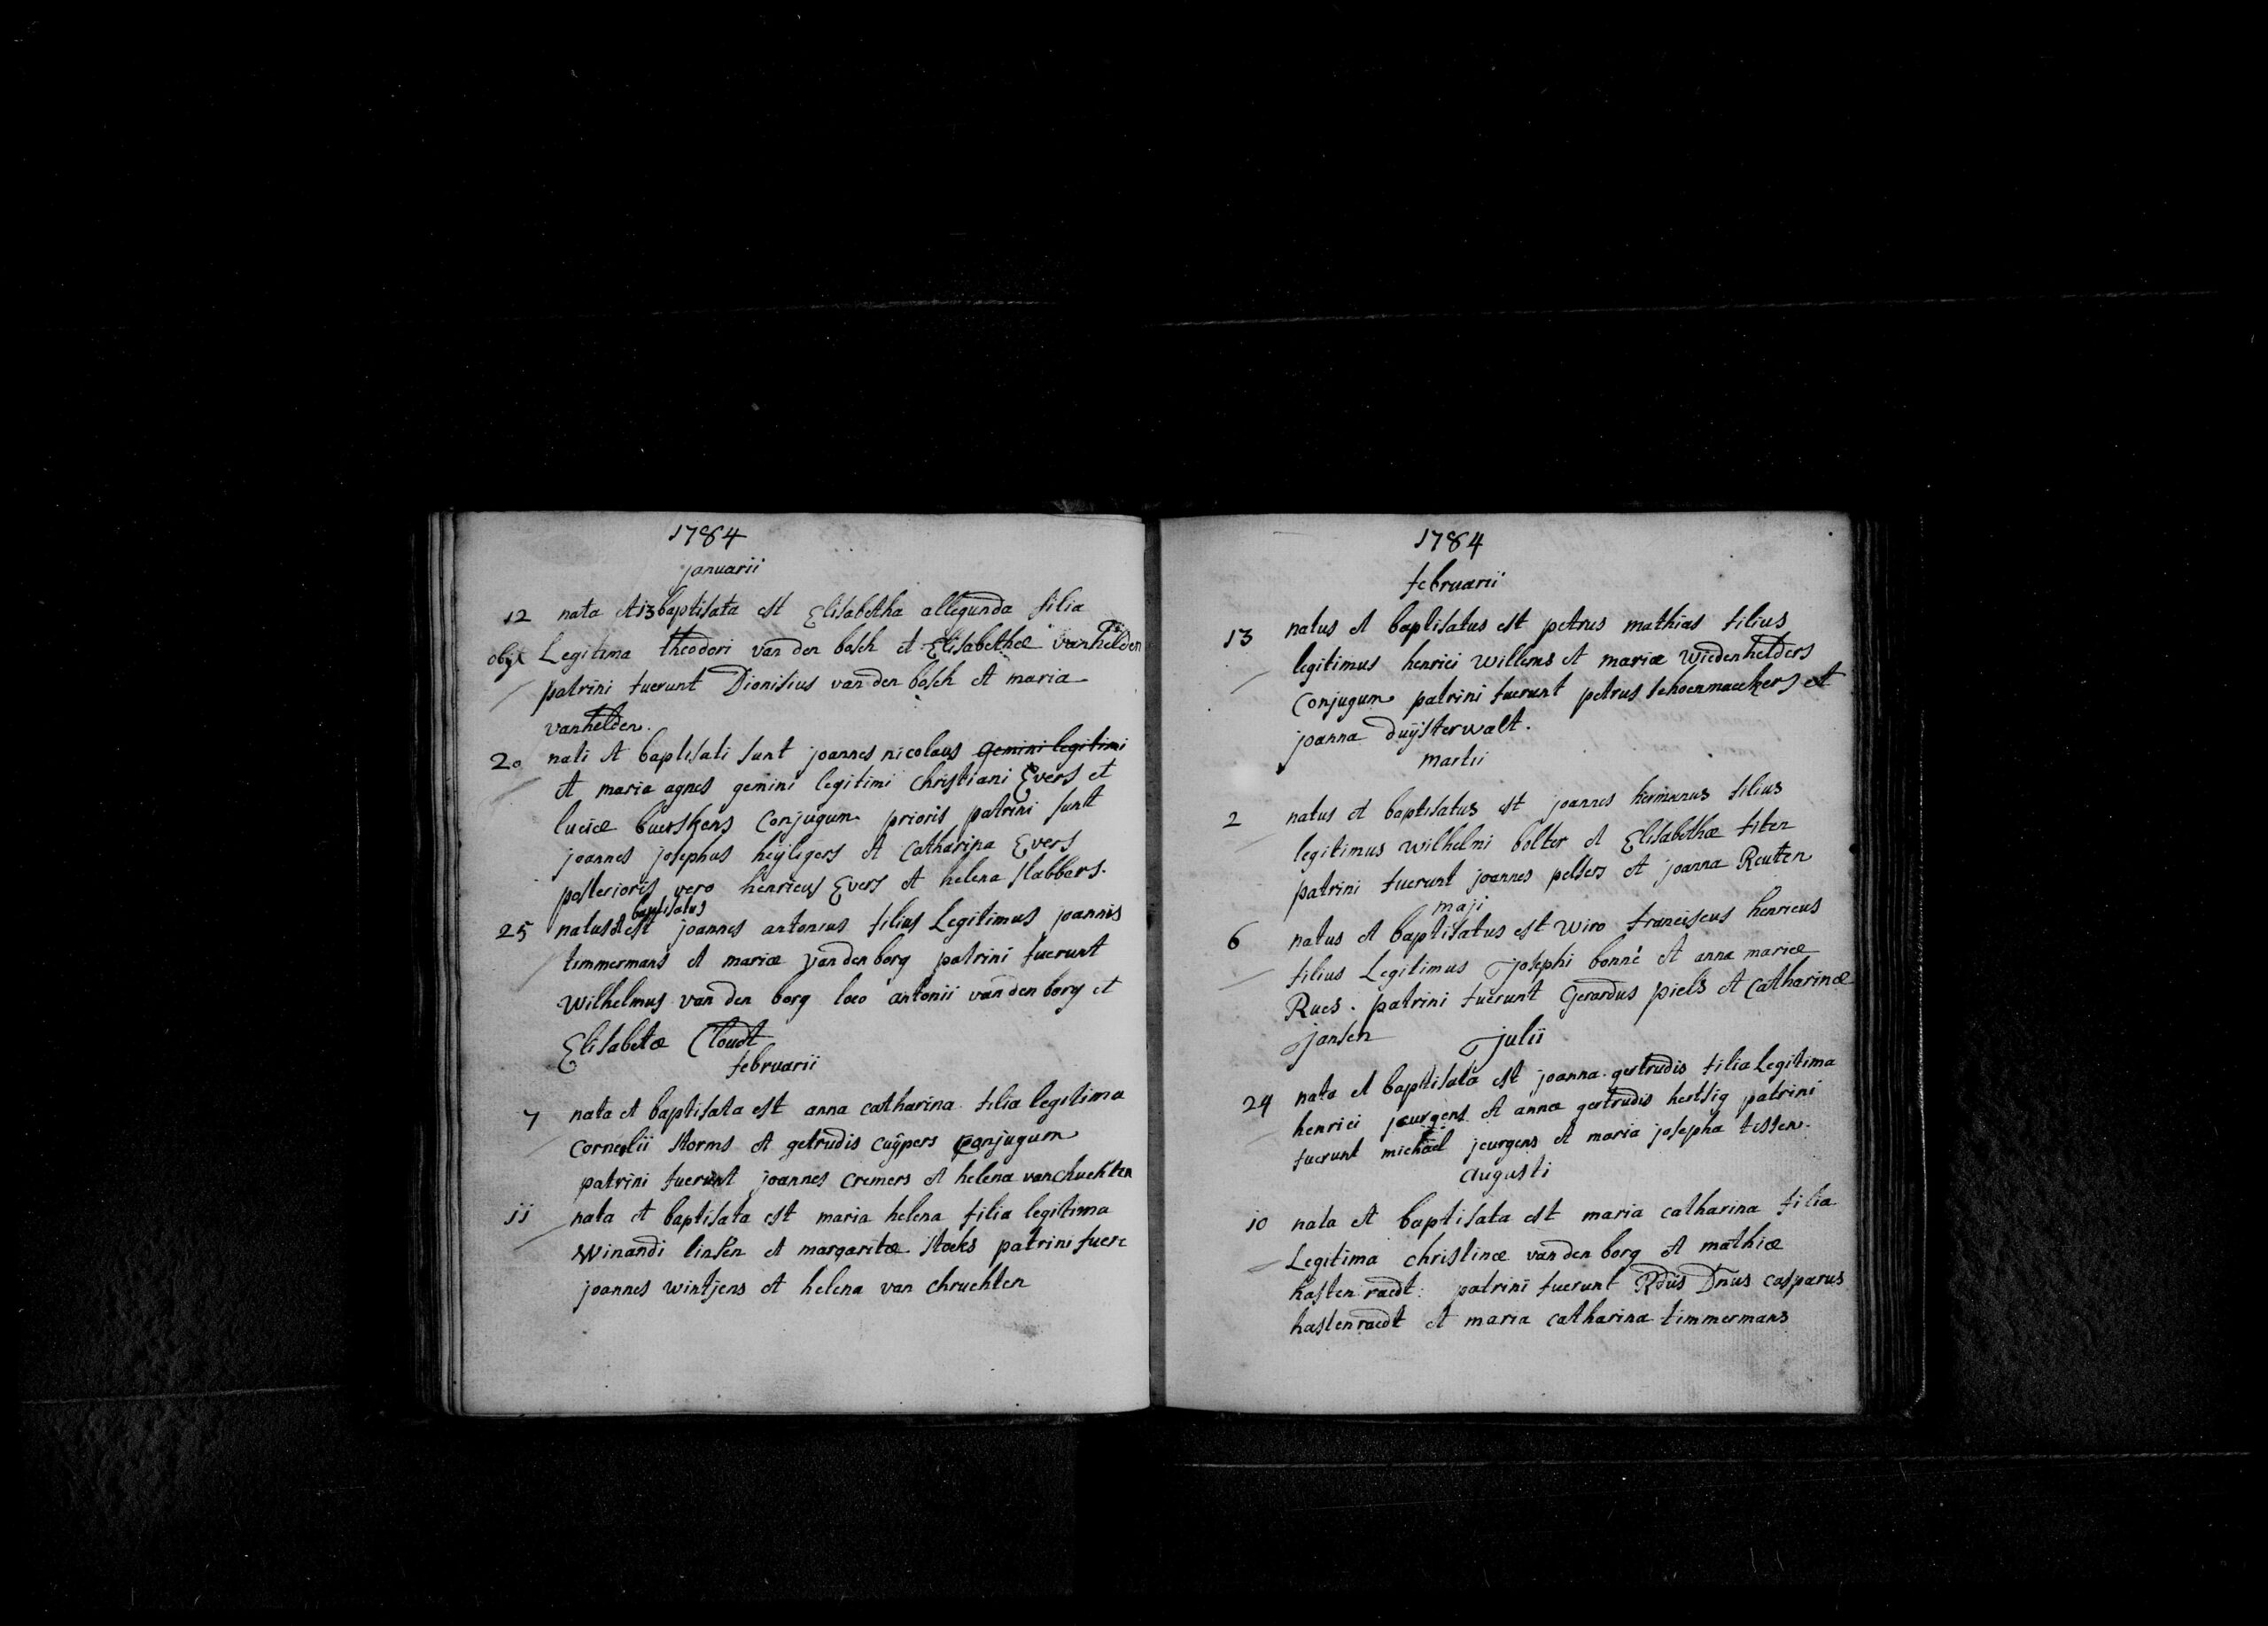 1784
januarii
12 nata et 13 baptisata est Elisabetha allegunda filia
obijt Legitima theodori van den bosch et Elisabethæ vanhelden
patrini fuerunt Dionisius van den bosch et maria
vanhelden.
20 nati et baptisati sunt joannes nicolaus gemini legitimi
et maria agnes gemini legitimi christiani Evers et
luciæ buerskens Conjugum prioris patrini sunt
joannes josephus heÿligers et Catharina Evers
posterioris vero henricus Evers et helena slabbers.
baptisatus
25 natus et est joannes antonius filius Legitimus joannis
timmermans et mariæ van den borg patrini fuerunt
Wilhelmus van den borg loco antonii van den borg et
Elisabetæ Cloudt
februarii
7 nata et baptisata est anna catharina filia legitima
Cornelii storms et getrudis cuÿpers Conjugum
patrini fuerunt joannes cremers et helena vanchuchten
11 nata et baptisata est maria helena filia legitima
Winandi linsen et margaritæ stocks patrini fuere
joannes wintjens et helena van chruchten
1784
februarii
13 natus et baptisatus est petrus mathias filius
legitimus henrici willems et mariæ wiedenhelders
Conjugum patrini fuerunt petrus schoenmaeckers et
joanna duÿsterwalt.
martii
2 natus et baptisatus est joannes hermanus filius
legitimus wilhelmi bolter et Elisabethæ fiten
patrini fuerunt joannes pelsers et joanna Reutten
maji
6 natus et baptisatus est wiro franciscus henricus
filius Legitimus Josephi bonné et anna mariæ
Rues. patrini fuerunt Gerardus piels et Catharinæ
Jansen
Julii
24 nata et baptisata est joanna gertrudis filia Legitima
henrici jeurgens et annæ gertrudis hertsig patrini
fuerunt michael jeurgens et maria josepha tessen.
augusti
10 nata et baptisata est maria catharina filia
Legitima christinæ van den borg et mathiæ
hasten raedt: patrini fuerunt Rdus Dnus casparus
hastenraedt et maria catharina timmermans